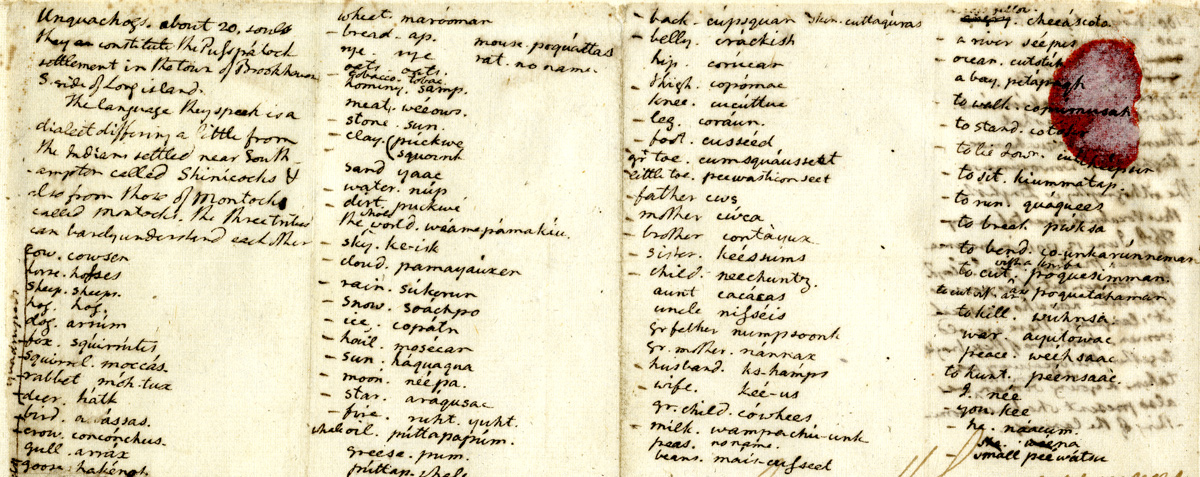 Unquachogs. about 20. souls
they constitute the Puspátock
settlement in the town of Brookhaven
S. side of Long island.
The language they speak is a
dialect differing a little from
the Indians settled near South-
-ampton called Shinicocks &
also from those of Montock
called Montocks. The three tribes
can barely understand each other
cow. cowsen
horse. hosses
sheep. sheeps.
hog. hog.
dog. arrúm
- fox. squirrútes
- squirrel. moccás.
- rabbet. moh-tux
- deer. hátk
- bird. assas.
- crow. concónchus.
gull. arráx
goose. hakenah
wheat. maróoman
- bread. ap.
rye. rye
oats. oats.
tobacco. tobac.
hominy. samp.
mouse. poquáttas
rat. no name.
- meat. wéeows.
- stone. sun.
- clay. puckwe
squoint
sand yaac
- water. núp
- dirt. puckwé
the whole world. wéame pámakiu.
- sky. ke-isk
- cloud. pamayáuxen
- rain. súkerun
- snow. soáchpo
- ice. copátn
- hail. mosécar
- sun. háquaqua
- moon. néepa.
- star. aráqusac
- fire. ruht. yuht.
whale oil. púttapapúm.
greese. pum.
púttap. whale
- back. cúpsquan skin. cuttaqúras
- belly. crackish
hip. corucar
- thigh. copómac
- knee. cucúttuc
- leg. coráun.
- foot. cusséed
gr. toe. cumsquáusseet
little toe. peewasticonseet
- father cws
mother cíwca
- brother. contáyux.
- sister. keessums
- child. neechuntz.
aunt cacácas
uncle nisséis
gr. father numpsoonk
gr. mother. nánnax
- husband. ks-hamps
- wife. kée-us
gr. child. cówhees
- milk. wampachú-unk
peas. no name.
beans. mais-cusseet
cheeáscota
- a river séepus
- ocean. cutstuk
a bay. petápagh
- to walk. copumusah
- to stand. cotofu
- to lie down.
- to sit. kiummatap.
- to run. quáquees
- to break púsksa
- to bend. co-unkarúnneman
to cut with a knife. poquesímman.
to cut with an ax poquatáhaman
- to kill. wuhnsa
war ayutowac
peace. weehsaac
to hunt. péensaac.
- I. née
- you. kee
- he. naácum.
she. weena
- small peewátsu